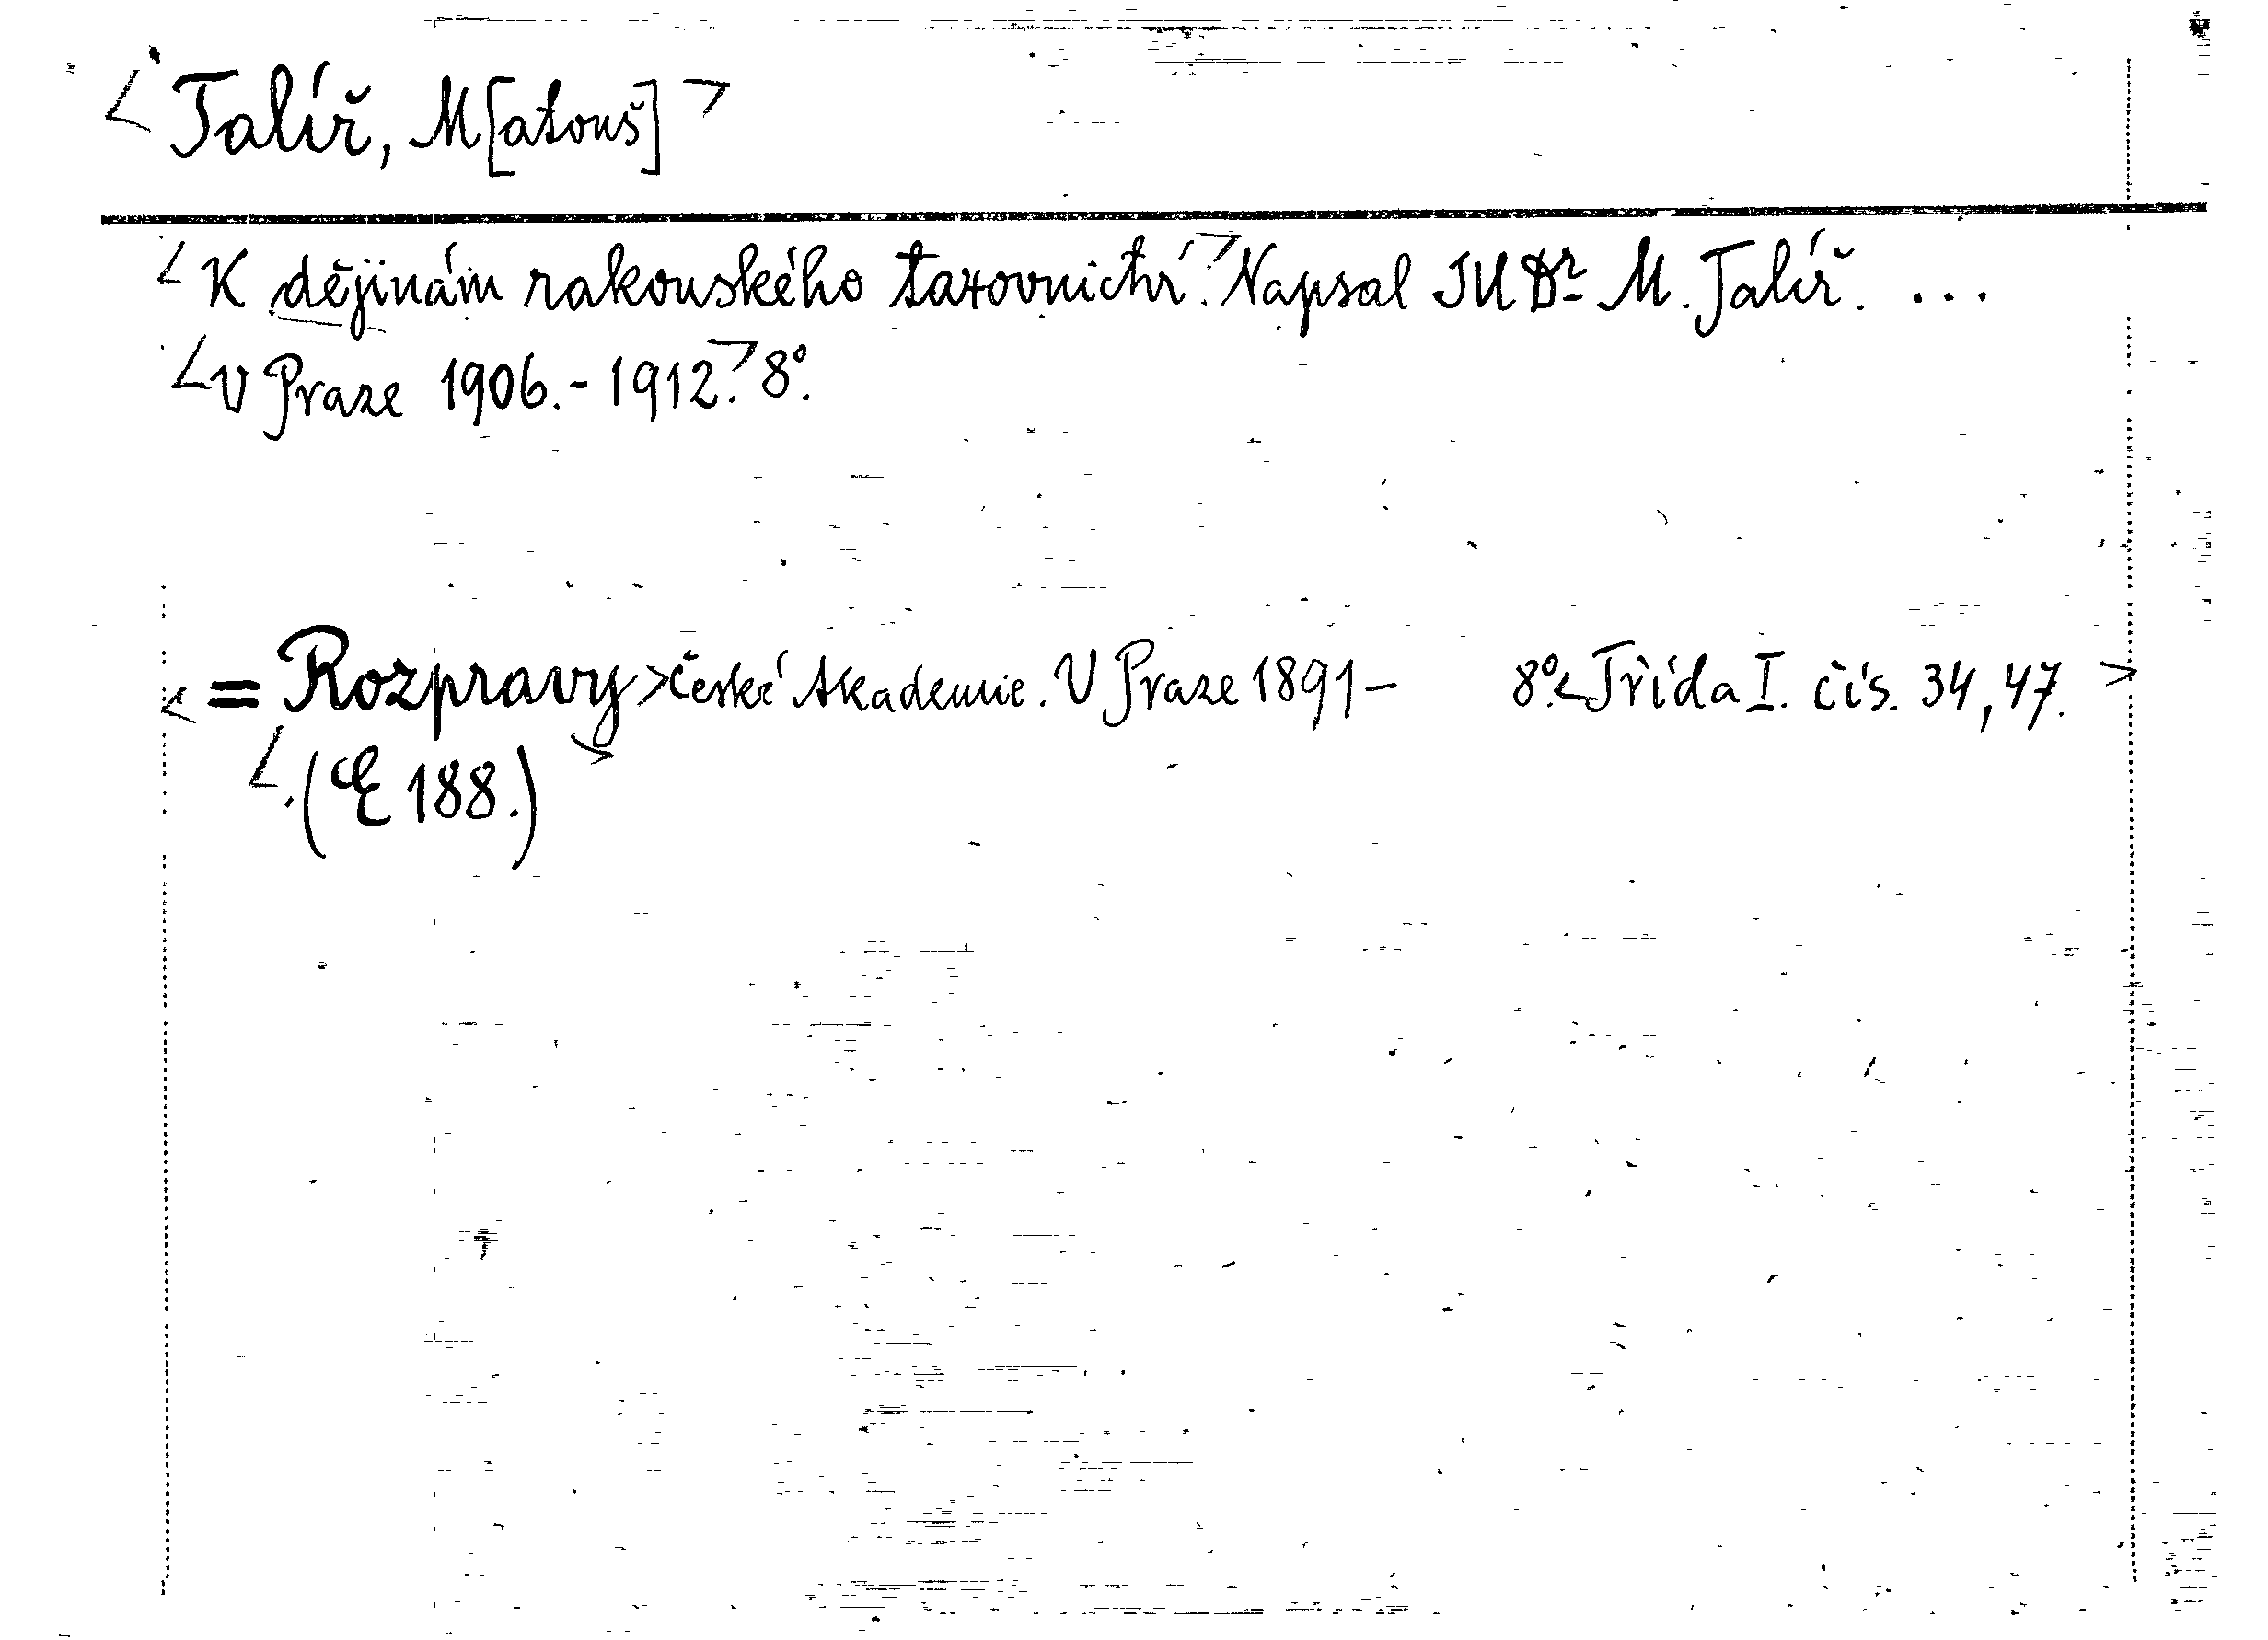 <Talíř, M[atouš]>
<K dějinám rakouského taxovnictví.> Napsal JUDr. M. Talíř. ...
<V Praze 1906.-1912.> 8°.
<= Rozpravy> České Akademie. V Praze 1891- 8°. <Třída I. čís. 34, 47.>
<(E 188.)>